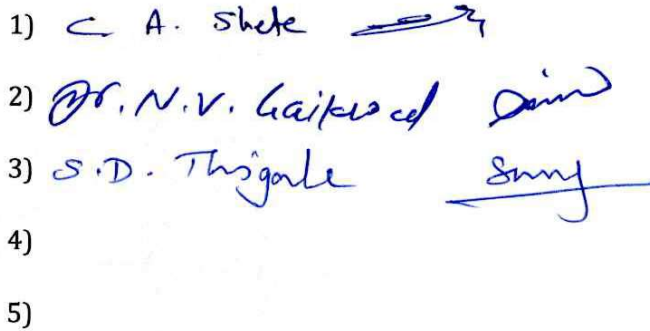 1) C A. Shete
2) Dr. N.V. Gaikwad
3) S.D. Thigale
4)
5)